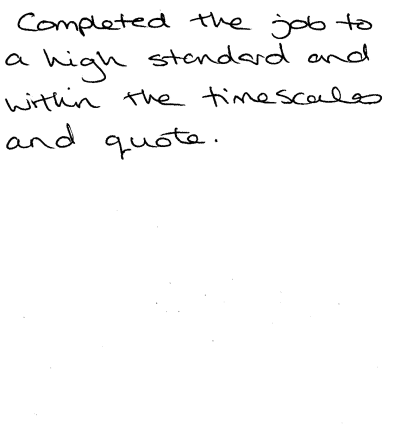 Completed the job to
a high standard and
within the timescales
and quote.